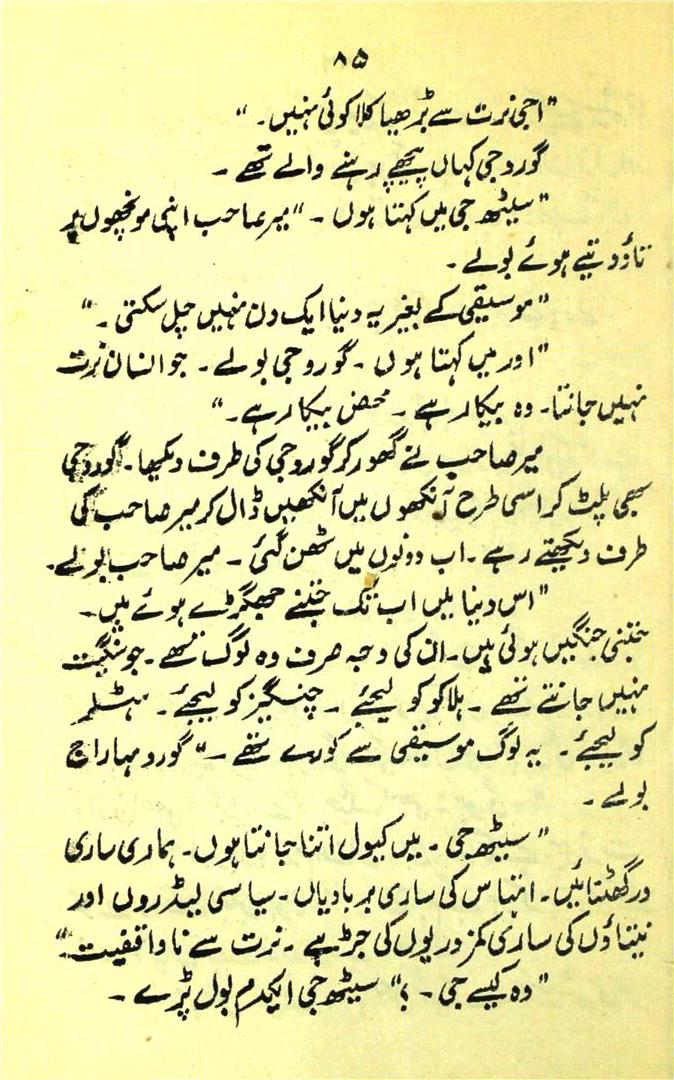 ۸۵
"اجی نرت سے بڑھیا کلا کوئی نہیں۔"
گوروجی کہاں پیچھے رہنے والے تھے۔
"سیٹھ جی میں کہتا ہوں۔" میر صاحب اپنی مونچھوں پر
تاؤ دیتے ہوئے بولے۔
"موسیقی کے بغیر یہ دنیا ایک دن نہیں چل سکتی۔"
"اور میں کہتا ہوں۔ گوروجی بولے۔ جو انسان نرت
نہیں جانتا۔ وہ بیکار ہے۔ محض بیکار ہے۔"
میر صاحب نے گھور کر گوروجی کی طرف دیکھا۔ گوروجی
بھی پلٹ کر اسی طرح آنکھوں میں آنکھیں ڈال کر میر صاحب کی
طرف دیکھتے رہے۔ اب دونوں میں ٹھن گئی۔ میر صاحب بولے۔
"اس دنیا میں اب تک جتنے جھگڑے ہوئے ہیں۔
جتنی جنگیں ہوئی ہیں۔ ان کی وجہ صرف وہ لوگ تھے۔ جو سنگیت
نہیں جانتے تھے۔ ہلاکو کو لیجئے۔ چنگیز کو لیجئے۔ ہٹلر
کو لیجئے۔ یہ لوگ موسیقی سے کورے تھے۔" گورو مہاراج
بولے۔
"سیٹھ جی۔ میں کیول اتنا جانتا ہوں۔ ہماری ساری
درگھٹنائیں۔ اتہاس کی ساری بربادیاں۔ سیاسی لیڈروں اور
نیتاؤں کی ساری کمزوریوں کی جڑ ہے۔ نرت سے ناواقفیت۔"
"وہ کیسے جی۔؟" سیٹھ جی ایکدم بول پڑے۔